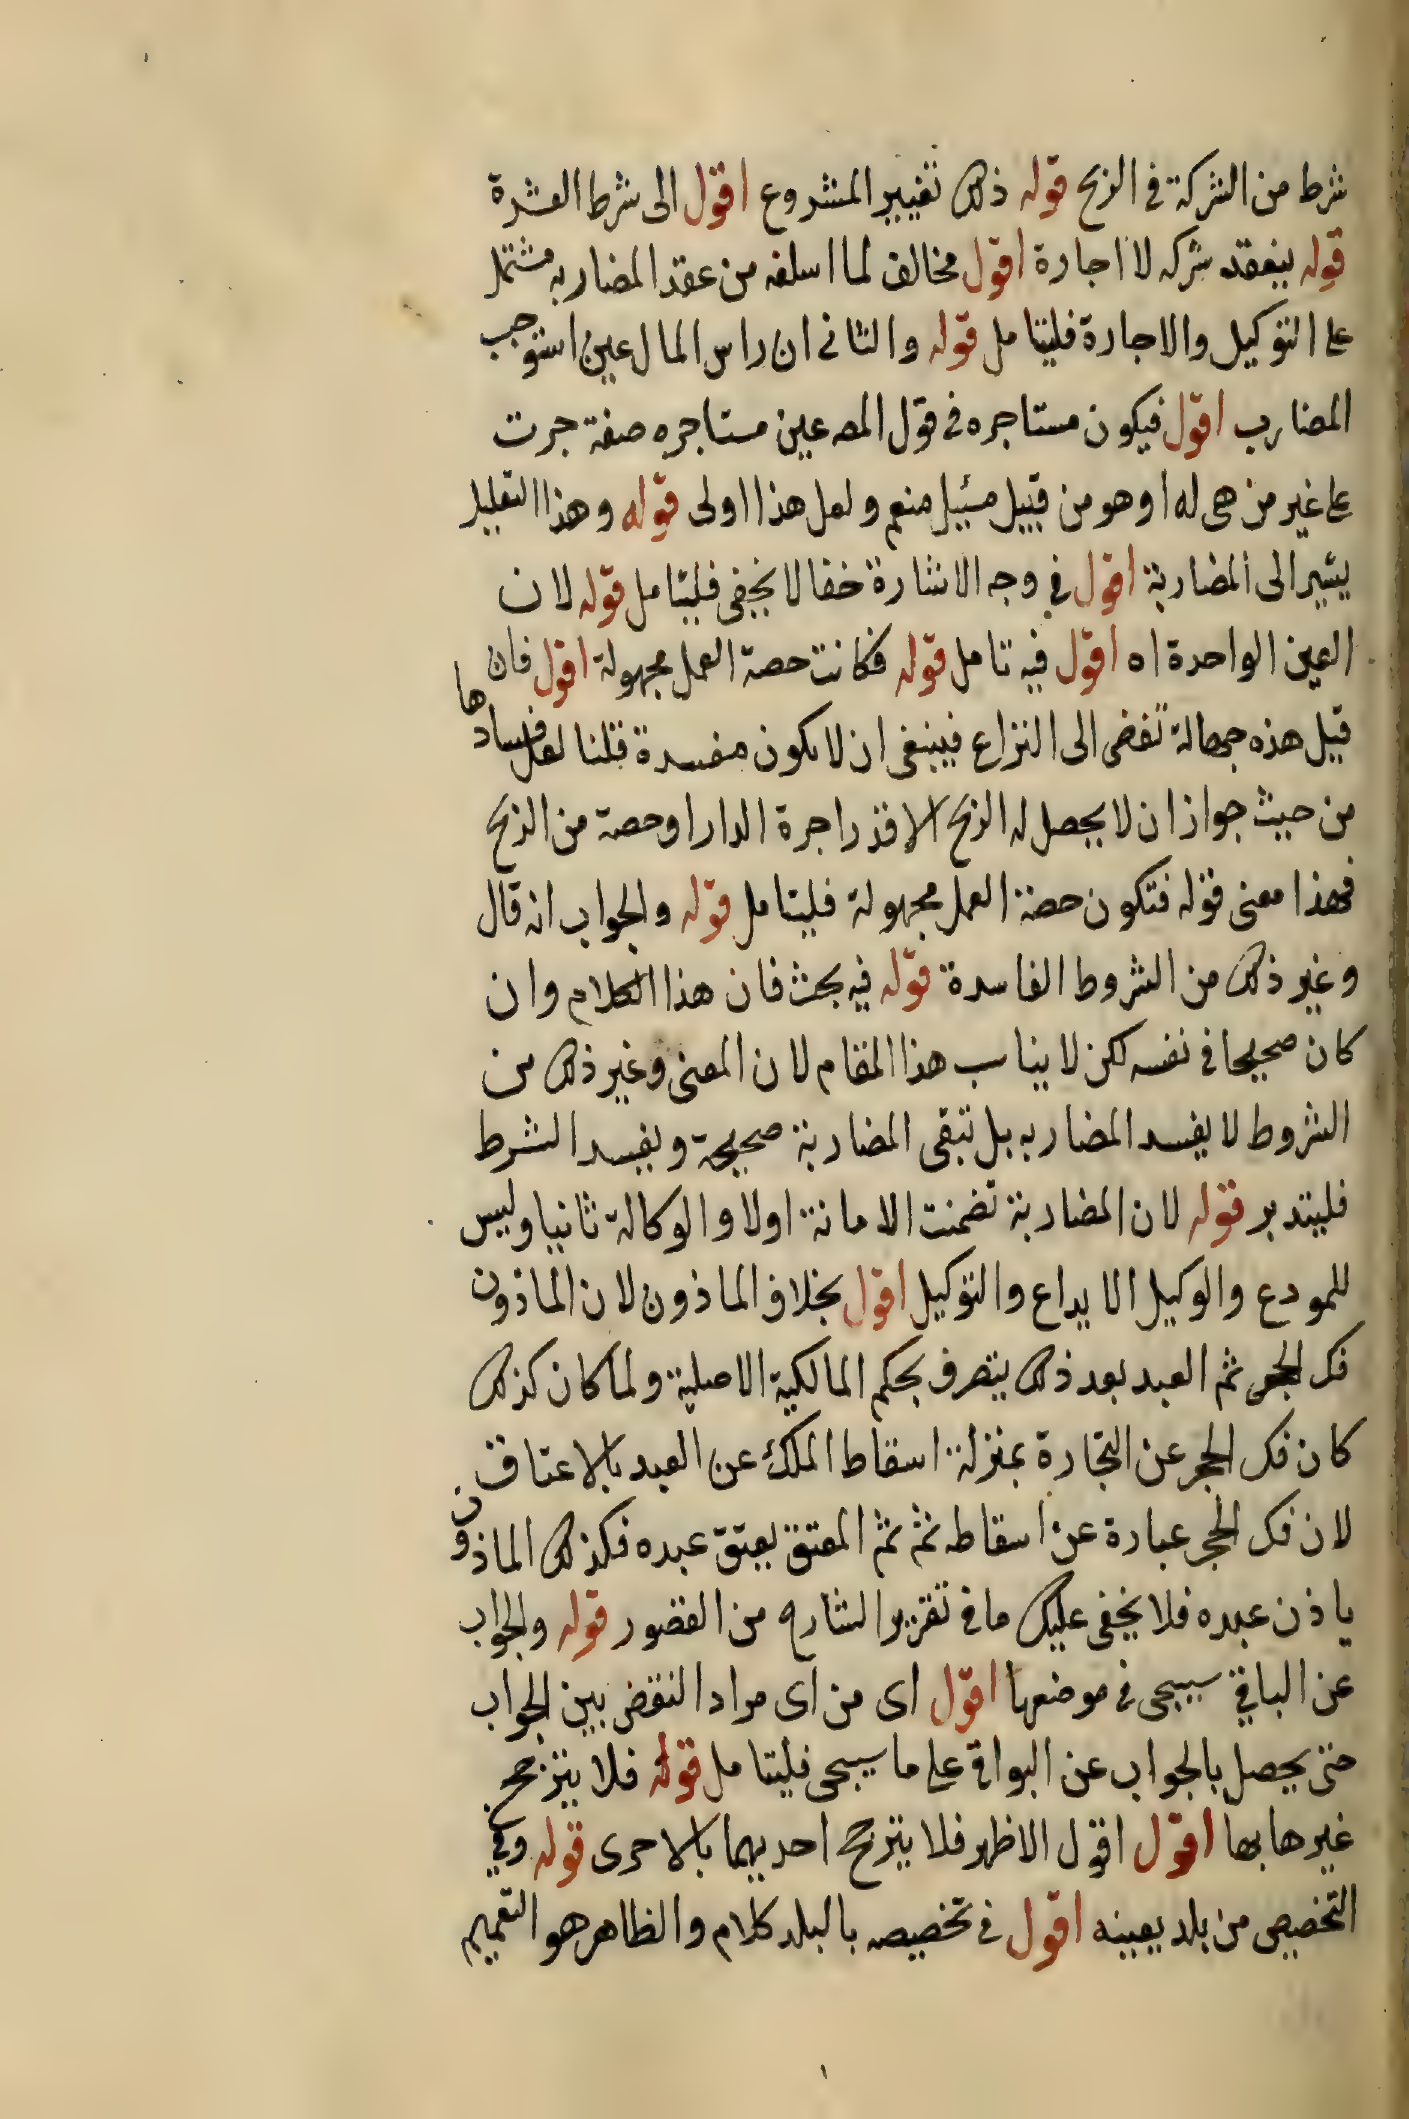 شرط من الشركة فى الربح قوله ذلك تغيير المشروع اقول الى شرط العشرة
قوله ينعقد شركه لا اجارة اقول مخالف لما اسلفه من عقد المضاربه مشتمل
على التوكيل والاجارة فليتامل قوله والثانى ان راس المال عين استوجب
المضارب اقول فيكون مستاجره فى قول المصـ عين مستاجره صفة جرت
على غير من هى له او هو من قبيل سيل منعم ولعل هذا اولى قوله وهذا التعليل
يشير الى المضاربة اقول فى وجه الاشارة خفا لا يخفى فليتامل قوله لان
العين الواحدة اه اقول فيه تامل قوله فكانت حصة العمل مجهولة اقول فان
قيل هذه جهالة تفضى الى النزاع فينبغى ان لا يكون مفسدة قلنا لعل فسادها
من حيث جواز ان لا يحصل له الربح الا قدر اجرة الدار او حصة من الربح
فهذا معنى قوله فتكون حصة العمل مجهولة فليتامل قوله والجواب انه قال
وغير ذلك من الشروط الفاسدة قوله فيه بحث فان هذا الكلام وان
كان صحيحا فى نفسه لكن لا يناسب هذا المقام لان المعنى وغير ذلك من
الشروط لا يفسد المضاربه بل تبقى المضاربة صحيحة ويفسد الشرط
فليتدبر قوله لان المضاربة تضمنت الامانة اولا والوكالة ثانيا وليس
للمودع والوكيل الايداع والتوكيل اقول بخلاف الماذون لان الماذون
فك الحجر ثم العبد بعد ذلك يتصرف بحكم المالكية الاصلية ولما كان كذلك
كان فك الحجر عن التجارة بمنزلة اسقاط الملك عن العبد بالاعتاق
لان فك الحجر عبارة عن اسقاطه ثم ثم المعتق يعتق عبده فكذلك الماذون
ياذن عبده فلا يخفى عليك ما فى تقرير الشارح من القصور قوله والجواب
عن الباقى سيجى فى موضعها اقول اى من اى مراد النقض بين الجواب
حتى يحصل بالجواب عن البواقى على ما سيجى فليتامل قوله فلا يترجح
غيرها بها اقول اقول الاظهر فلا يترجح احديهما بالاخرى قوله وفى
التخصيص من بلد بعينه اقول فى تخصيصه بالبلد كلام والظاهر هو التعميم